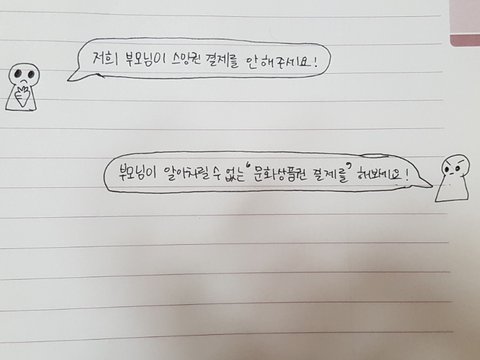 저희 부모님이 스밍권 결제를 안 해주세요!
부모님이 알아차릴 수 없는 "문화상품권 결제를" 해보세요!